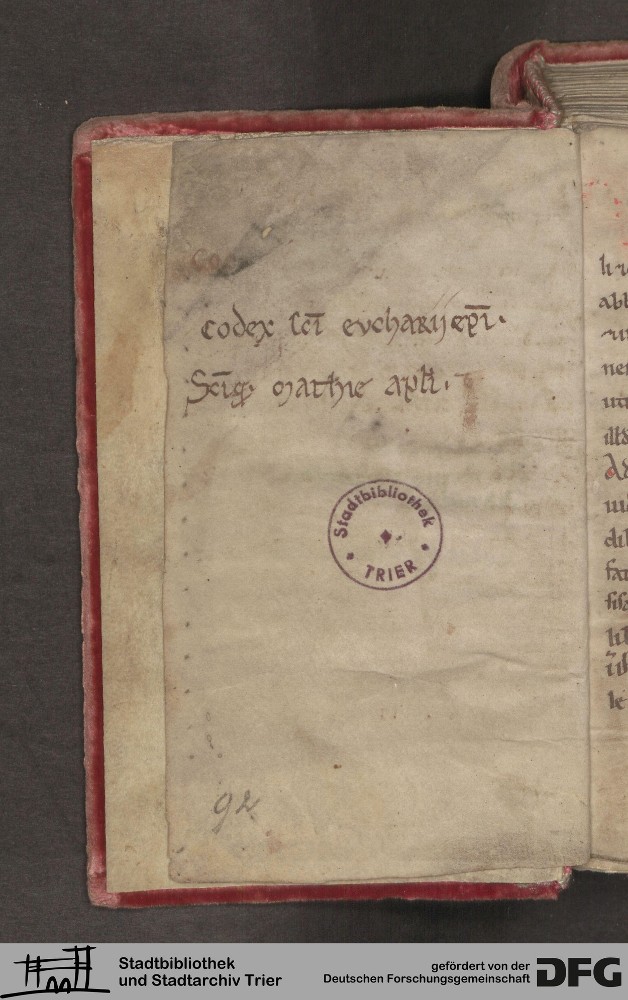 codex sci eucharij epi.
Sciq mathie apli.
Stadtbibliothek
TRIER
92
li
abb
ne
utı
ill
Ad
dil
fa
le
Stadtbibliothek
und Stadtarchiv Trier
gefördert von der
Deutschen Forschungsgemeinschaft
DFG